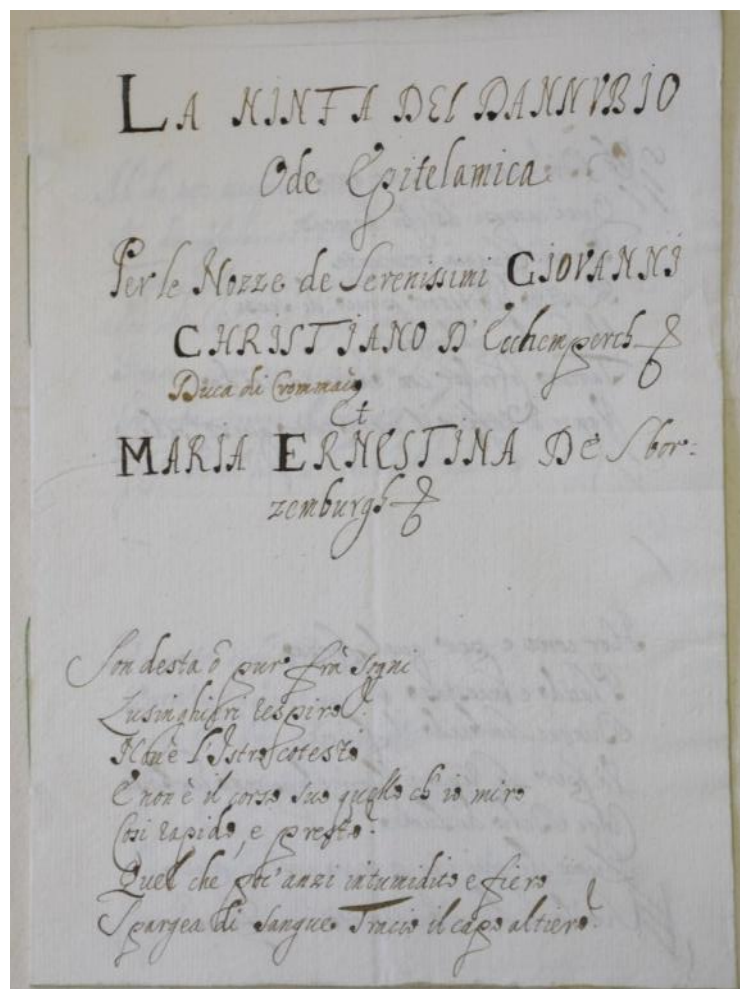 LA NINFA DEL DANNVBIO
Ode Epitelamica
Per le Nozze de Serenissimi GIOVANNI
CHRISTIANO D' Ecchemperch
Duca di Crommau
Et
MARIA ERNESTINA De Sbor:
zemburgh
Son desta ò pur frà sogni
Lusinghieri respiro?
Non è l'Istro cotesto
E non è il corso suo quello ch'io miro
Cosi rapido, e presto?
Quel che poc'anzi intumidito e fiero
Spargea di sangue Tracio il capo altiero?